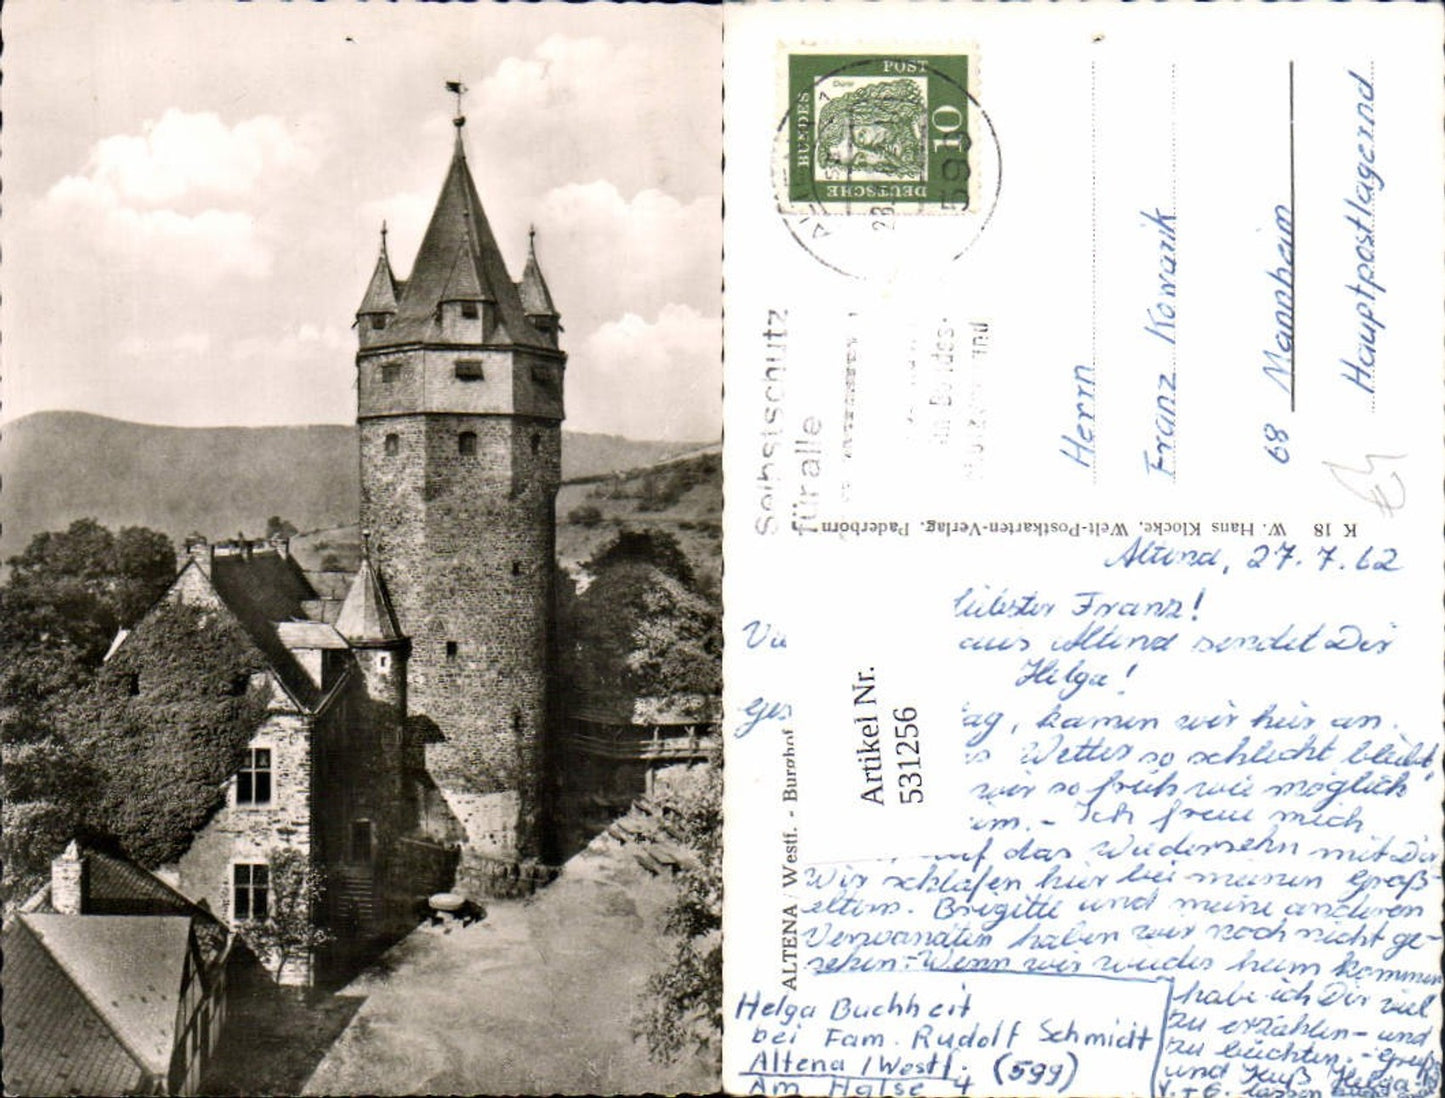 DEUTSCHE
BUNDES
POST
10
Dürer
28.
599
Selbstschutz
für alle
Herrn
Franz Kowarik
68 Mannheim
Hauptpostlagernd
K 18 W. Hans Klocke, Welt-Postkarten-Verlag, Paderborn
ALTENA / Westf. - Burghof
Artikel Nr.
531256
Altena, 27.7.62
liebster Franz!
aus Altena sendet Dir
Helga!
kamen wir hier an.
Wetter so schlecht bleibt,
wir so früh wie möglich
Ich freue mich
auf das Wiedersehn mit Dir
Wir schlafen hier bei meinen Groß-
eltern. Brigitte und meine anderen
Verwandten haben wir noch nicht ge-
sehen. Wenn wir wieder heim kommen
habe ich Dir viel
zu erzählen - und
zu beichten. - Gruß
und Kuß Helga
Helga Buchheit
bei Fam. Rudolf Schmidt
Altena / Westf. (599)
Am 4